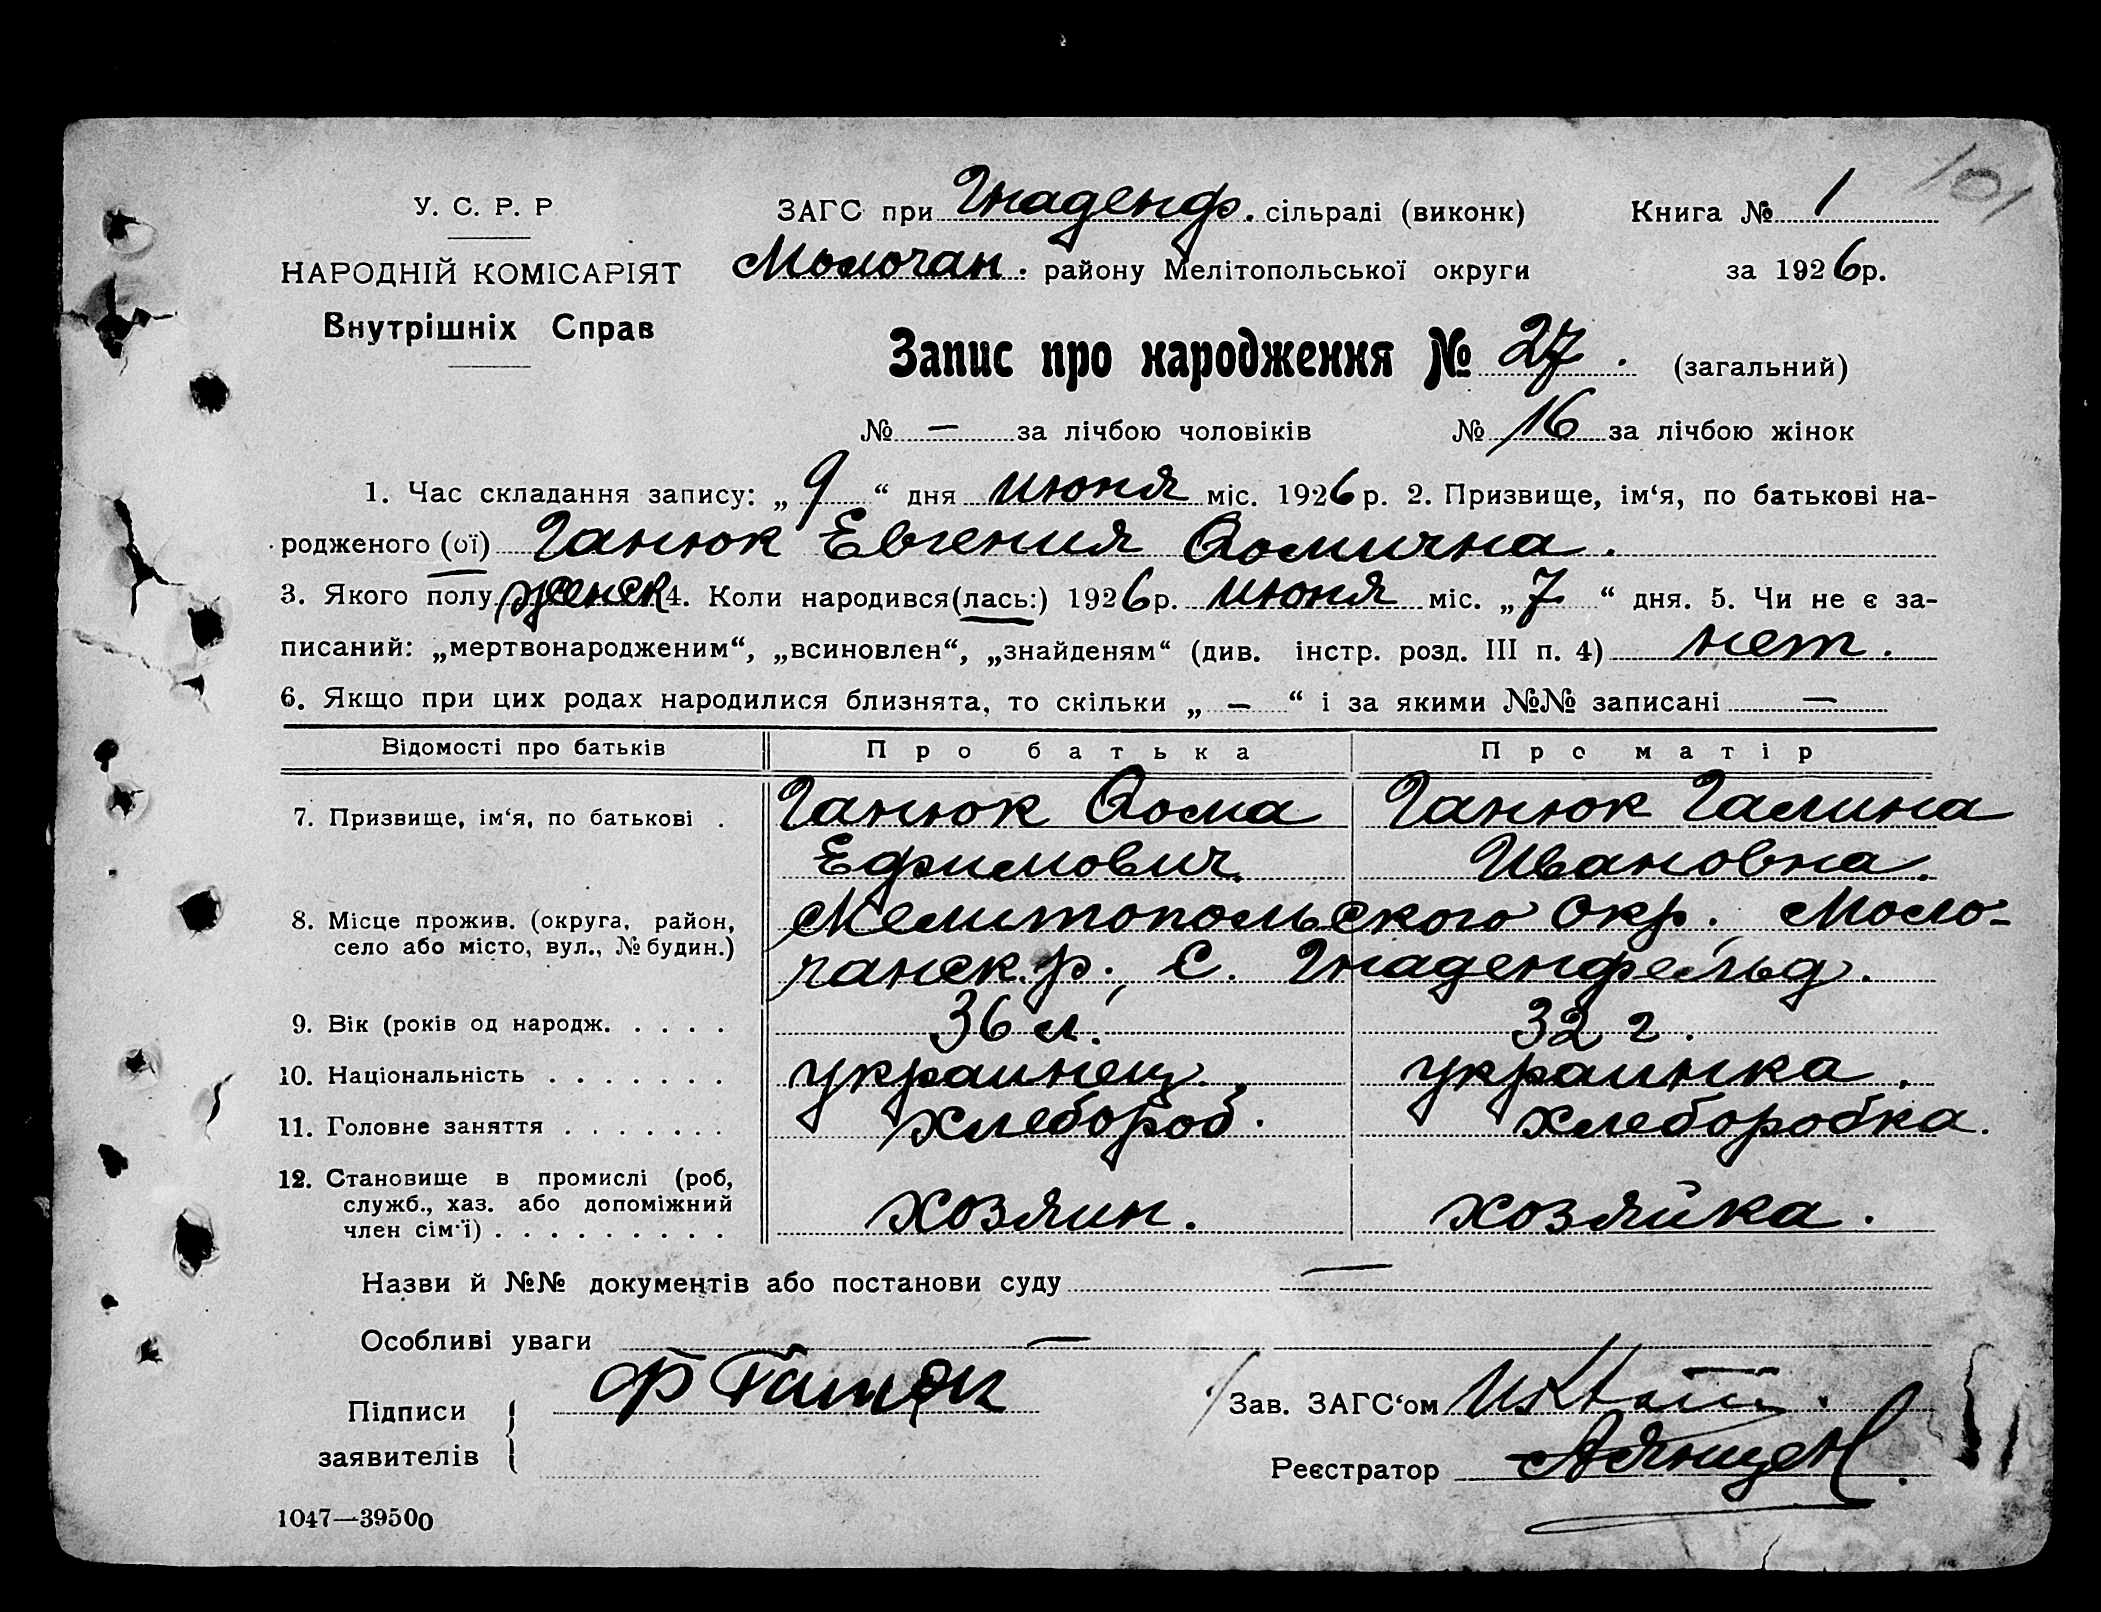 101
У. С. Р. Р
НАРОДНІЙ КОМІСАРІЯТ
Внутрішніх Справ
ЗАГС при Гнаденф. сільраді (виконк) Книга № 1
Молочан. району Мелітопольської округи за 1926р.
Запис про народження № 27. (загальний)
№ — за лічбою чоловіків № 16 за лічбою жінок
1. Час складання запису: „9“ дня июня міс. 1926р. 2. Призвище, ім‘я, по батькові на-
родженого (ої) Ганюк Евгения Фомична.
3. Якого полу женск 4. Коли народився(лась:) 1926р. июня міс. „7“ дня. 5. Чи не є за-
писаний: „мертвонародженим“, „всиновлен“, „знайденям“ (див. інстр. розд. III п. 4) нет.
6. Якщо при цих родах народилися близнята, то скільки „—“ і за якими №№ записані —
Відомості про батьків Про батька Про матір
7. Призвище, ім‘я, по батькові . Ганюк Фома Ганюк Галина
Ефимович. Ивановна.
8. Місце прожив. (округа, район, Мелитопольского Окр., Моло-
село або місто, вул., № будин.) чанск. р., с. Гнаденфельд.
9. Вік (років од народж. . . . . 36 л. 32 г.
10. Національність . . . . . . . украинец. украинка.
11. Головне заняття . . . . . . . хлебороб. хлеборобка.
12. Становище в промислі (роб,
служб., хаз. або допоміжний хозяин. хозяйка.
член сім‘ї) . . . . . . . . .
Назви й №№ документів або постанови суду —
Особливі уваги —
Підписи Ф Ганюк Зав. ЗАГС‘ом
заявителів Реєстратор
1047—39500